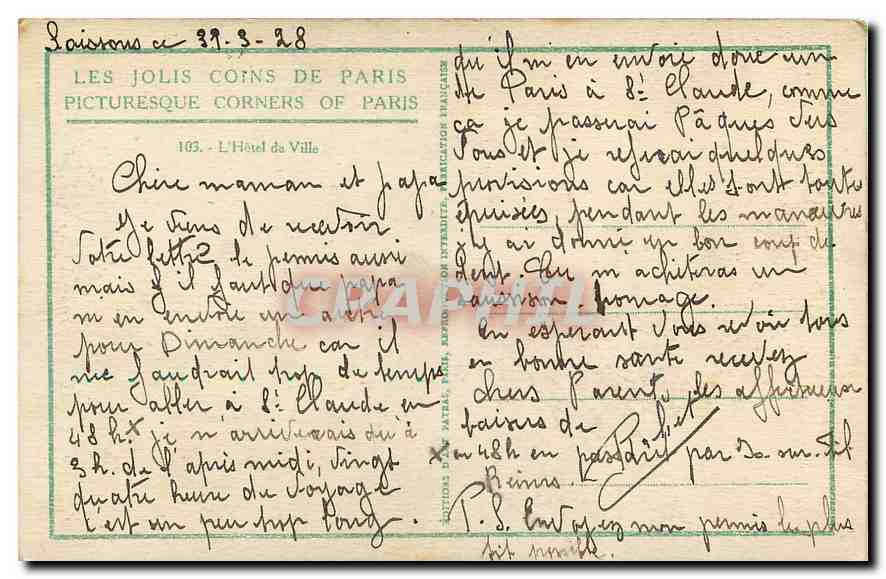 Soissons ce 31-3-28
LES JOLIS COINS DE PARIS
PICTURESQUE CORNERS OF PARIS
103. - L'Hôtel de Ville
Chère maman et papa
Je viens de recevoir
votre lettre le permis aussi
mais il faut que papa
m en envoie un autre
pour Dimanche car il
me faudrait trop de temps
pour aller à St Claude en
48 h. x je n'arriverais qu'à
3 h. de l'après midi, vingt
quatre heure de voyage
c'est un peu trop long.
qu'il m en envoie donc un
de Paris à St Claude, comme
ça je passerai Pâques vers
Vous et je referai quelques
provisions car elles sont toute
épuisées, pendant les manœuvres
j'y ai donné un bon coup de
dent. Tu m achèteras un
saucisson, fromage.
En espérant vous revoir tous
en bonne santé recevez
chers Parents, les affectueux
baisers de
x en 48h en passant par Is-sur-Til
Reims.
P.S. Envoyez mon permis le plus
tôt possible.
EDITIONS D'ART PATRAS, PARIS, REPRODUCTION INTERDITE, FABRICATION FRANÇAISE
CPAPHIL